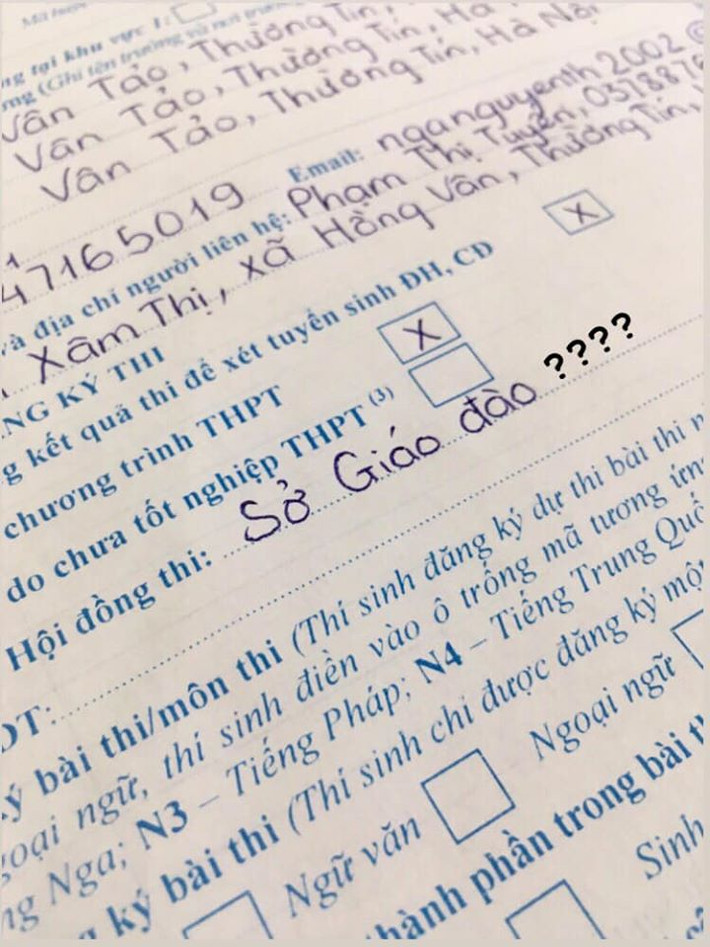 ng tại khu vực 1:
(Ghi tên trường và nơi
Vân Tảo, Thường Tín,
Vân Tảo, Thường Tín, Hà
Vân Tảo, Thường Tín, Hà Nội
47165019 Email: nganguyenth2002@
và địa chỉ người liên hệ: Phạm Thị Tuyến, 0378876
Xâm Thị, xã Hồng Vân, Thường Tín,
NG KÝ THI
g kết quả thi để xét tuyển sinh ĐH, CĐ X
chương trình THPT X
do chưa tốt nghiệp THPT (3)
Hội đồng thi: Sở Giáo đào ????
ĐT:
ý bài thi/môn thi (Thí sinh đăng ký dự thi bài thi n
goại ngữ, thí sinh điền vào ô trống mã tương ứn
ng Nga; N3 – Tiếng Pháp; N4 – Tiếng Trung Quố
g ký bài thi (Thí sinh chỉ được đăng ký mộ
Ngữ văn Ngoại ngữ
thành phần trong bài t
Sinh